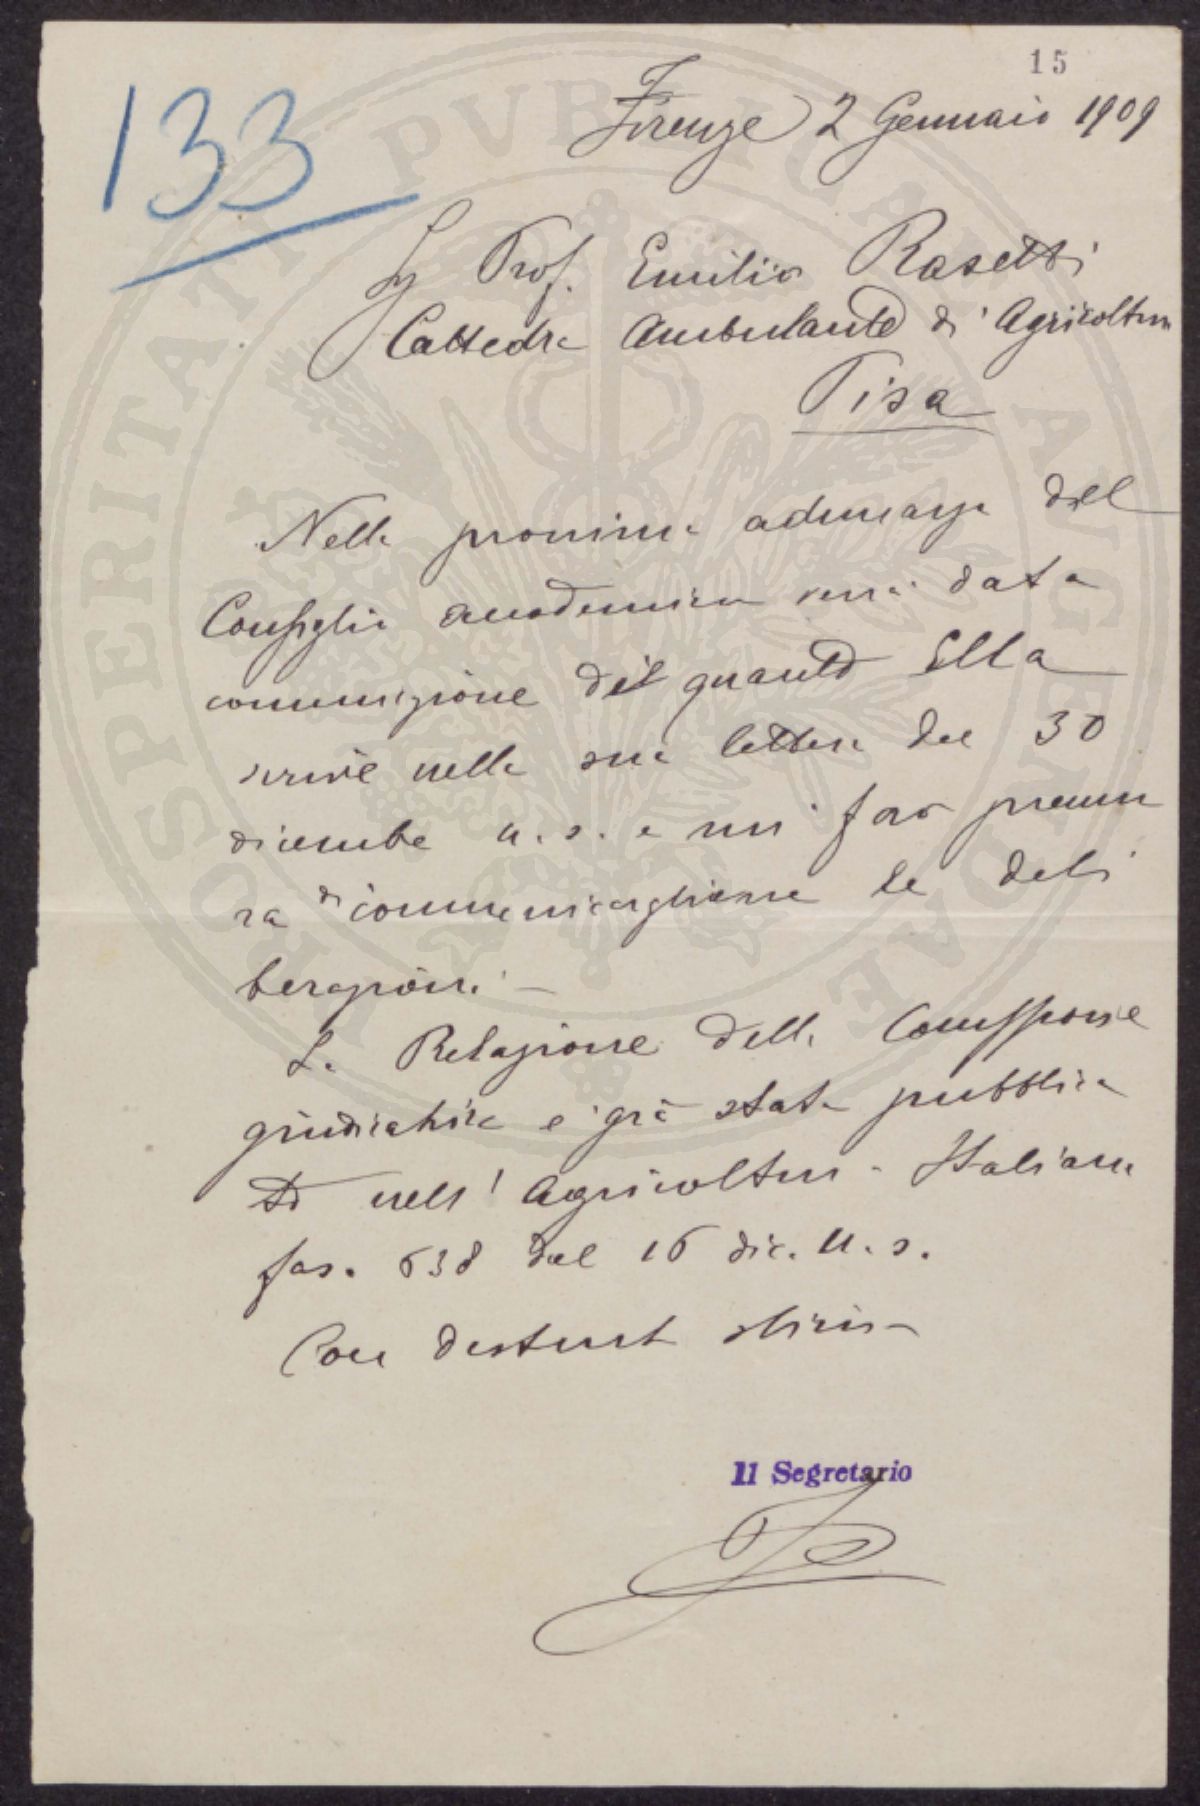 15
133
Firenze 2 Gennaio 1909
Sg Prof. Emilio Rasetti
Cattedra Ambulante di Agricoltura
Pisa
Nella prossima adunanza del
Consiglio accademico verrà data
comunicazione di quanto Ella
scrive nella sua lettera del 30
dicembre u. s. e mi farò premu
ra di comunicargliene le deli
berazioni. -
La Relazione della Commissione
giudicatrice e' già stata pubblica
ta nell' Agricoltura Italiana
fas. 638 del 16 dic. u. s.
Con distinta stima
Il Segretario
PROSPERITATI PVBLICAE AVGENDAE